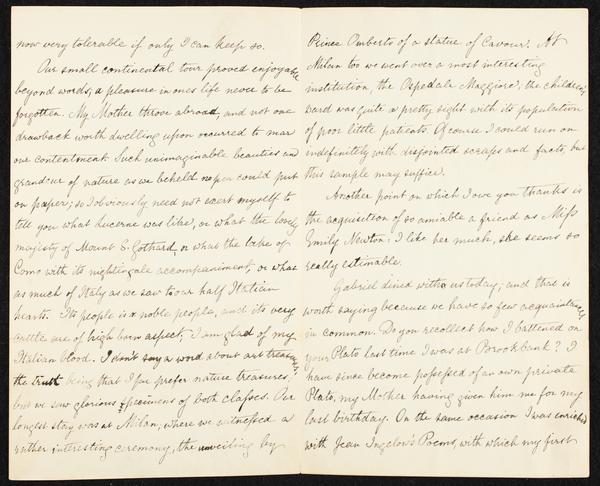 now very tolerable if only I can keep so.
Our small continental tour proved enjoyable
beyond words; a pleasure in ones life never to be
forgotten. My Mother throve abroad, and not one
drawback worth dwelling upon occurred to mar
our contentment. Such unimaginable beauties and
grandeur of nature as we beheld no pen could put
on paper; so I obviously need not exert myself to
tell you what Lucerne was like, or what the lovely
majesty of Mount S. Gothard, or what the Lake of
Como with its nightingale accompaniment, or what
as much of Italy as we saw to our half Italian
hearts. Its people is a noble people, and its very
cattle are of high born aspect, I am glad of my
Italian blood. I don't say a word about art treasures,
the truth being that I far prefer nature treasures,
but we saw glorious specimens of both classes. Our
longest stay was at Milan, where we witnessed a
rather interesting ceremony, the unveiling by
Prince Umberto of a statue of Cavour. At
Milan too we went over a most interesting
institution, the Ospedale Maggiore; the childrens
ward was quite a pretty sight with its population
of poor little patients. Of course I could run on
indefinitely with disjointed scraps and facts, but
this sample may suffice.
Another point on which I owe you thanks is
the acquisition of so amiable a friend as Miss
Emily Newton: I like her much, she seems so
really estimable.
Gabriel dined with us today; and that is
worth saying because we have so few acquaintances
in common. Do you recollect how I battened on
your Plato last time I was at Brookbank? I
have since become possessed of an own private
Plato, my Mother having given him me for my
last birthday. On the same occasion I was enriched
with Jean Ingelow's Poems, with which my first